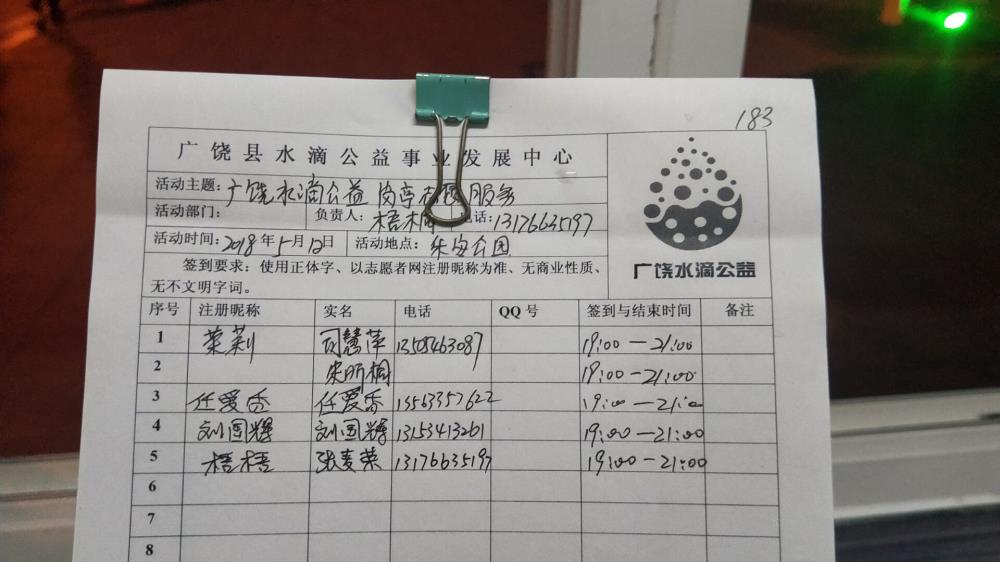 183
广饶县水滴公益事业发展中心
活动主题：广饶水滴公益 岗亭 服务
活动部门： 负责人：梧桐 电话：13176635197
活动时间：2018年5月12日 活动地点：乐安公园
广饶水滴公益
签到要求：使用正体字、以志愿者网注册昵称为准、无商业性质、
无不文明字词。
序号 注册昵称 实名 电话 QQ号 签到与结束时间 备注
1 茉莉 司慧萍 13505463087 19:00—21:00
2 19:00—21:00
3 任爱香 任爱香 13563357622 19:00—21:00
4 刘国辉 刘国辉 13153413261 19:00—21:00
5 梧梧 张麦荣 13176635197 19:00—21:00
6
7
8